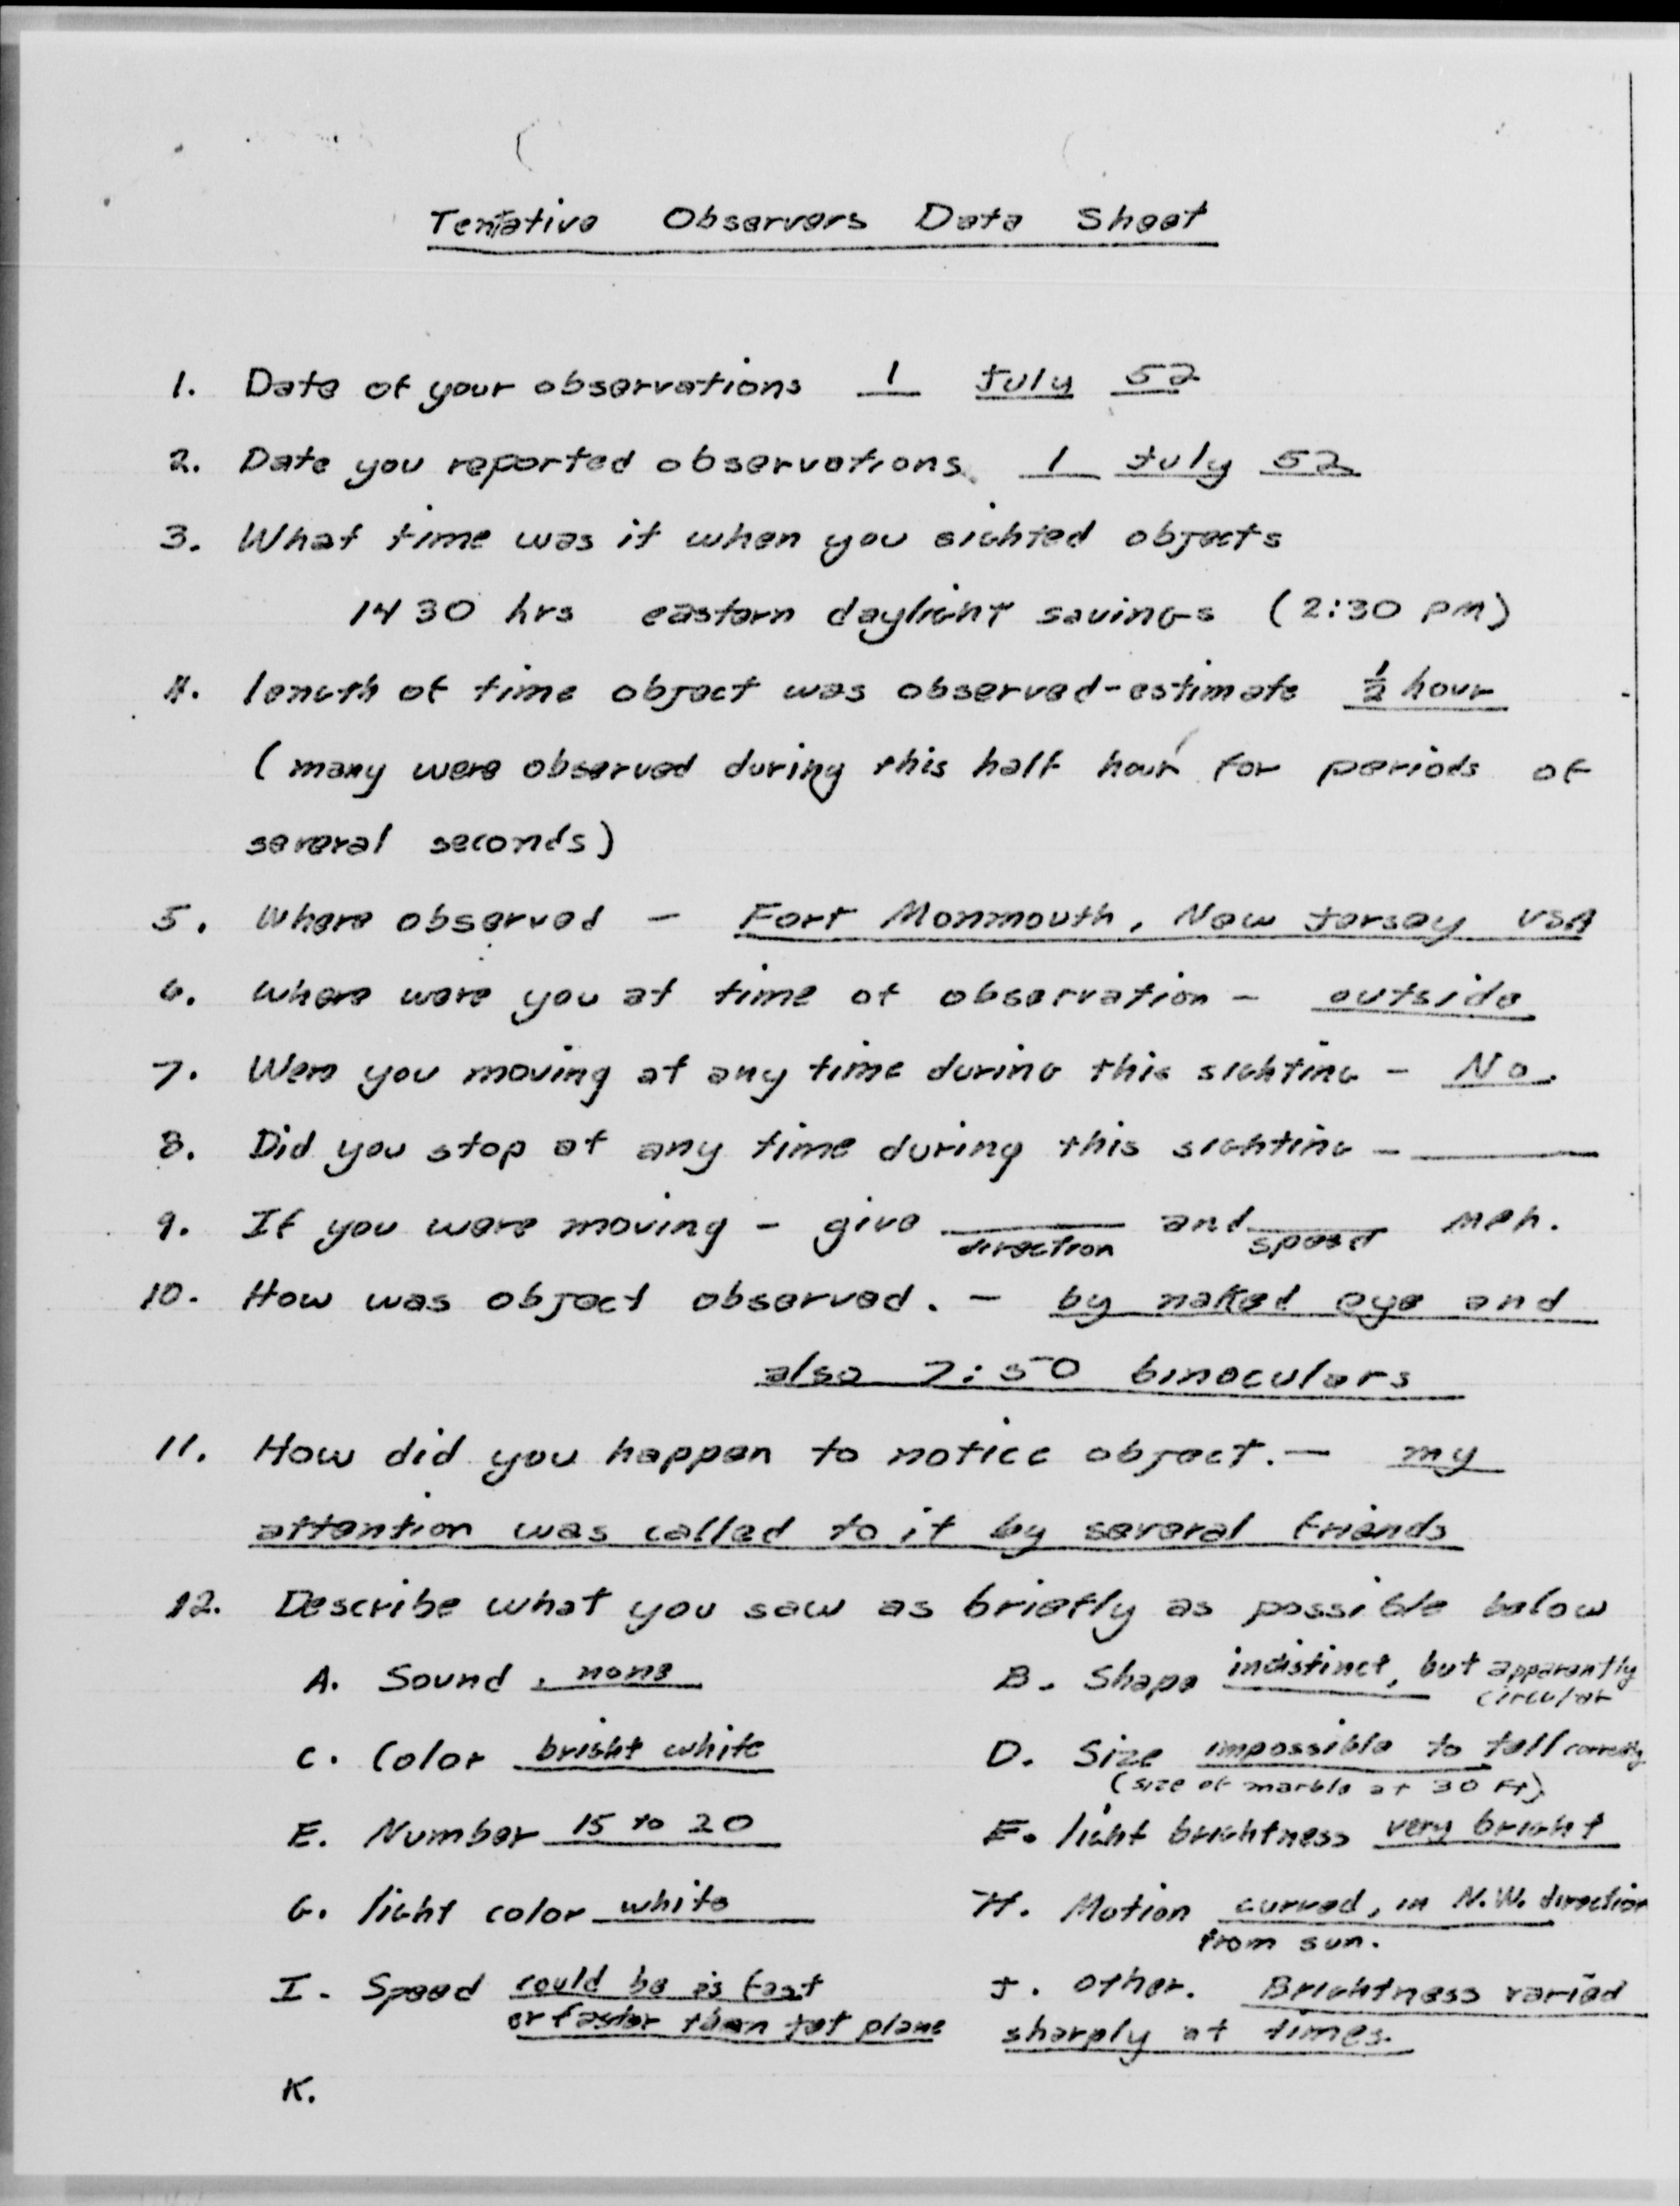 Tentative Observers Data Sheet
1. Date of your observations 1 July 52
2. Date you reported observations 1 July 52
3. What time was it when you sighted objects
1430 hrs eastern daylight savings (2:30 pm)
4. length of time object was observed-estimate ½ hour
(many were observed during this half hour for periods of
several seconds)
5. Where observed - Fort Monmouth, New Jersey USA
6. Where were you at time of observation - outside
7. Were you moving at any time during this sighting - No.
8. Did you stop at any time during this sighting -
9. If you were moving - give direction and speed mph.
10. How was object observed. - by naked eye and
also 7:50 binoculars
11. How did you happen to notice object. - my
attention was called to it by several friends
12. Describe what you saw as briefly as possible below
A. Sound, none B. Shape indistinct, but apparently
circular
C. Color bright white D. Size impossible to tell correctly
(size of marble at 30 Ft)
E. Number 15 to 20 F. light brightness very bright
G. light color white H. Motion curved, in N.W. direction
from sun.
I. Speed could be as fast J. other. Brightness varied
or faster than jet plane sharply at times.
K.